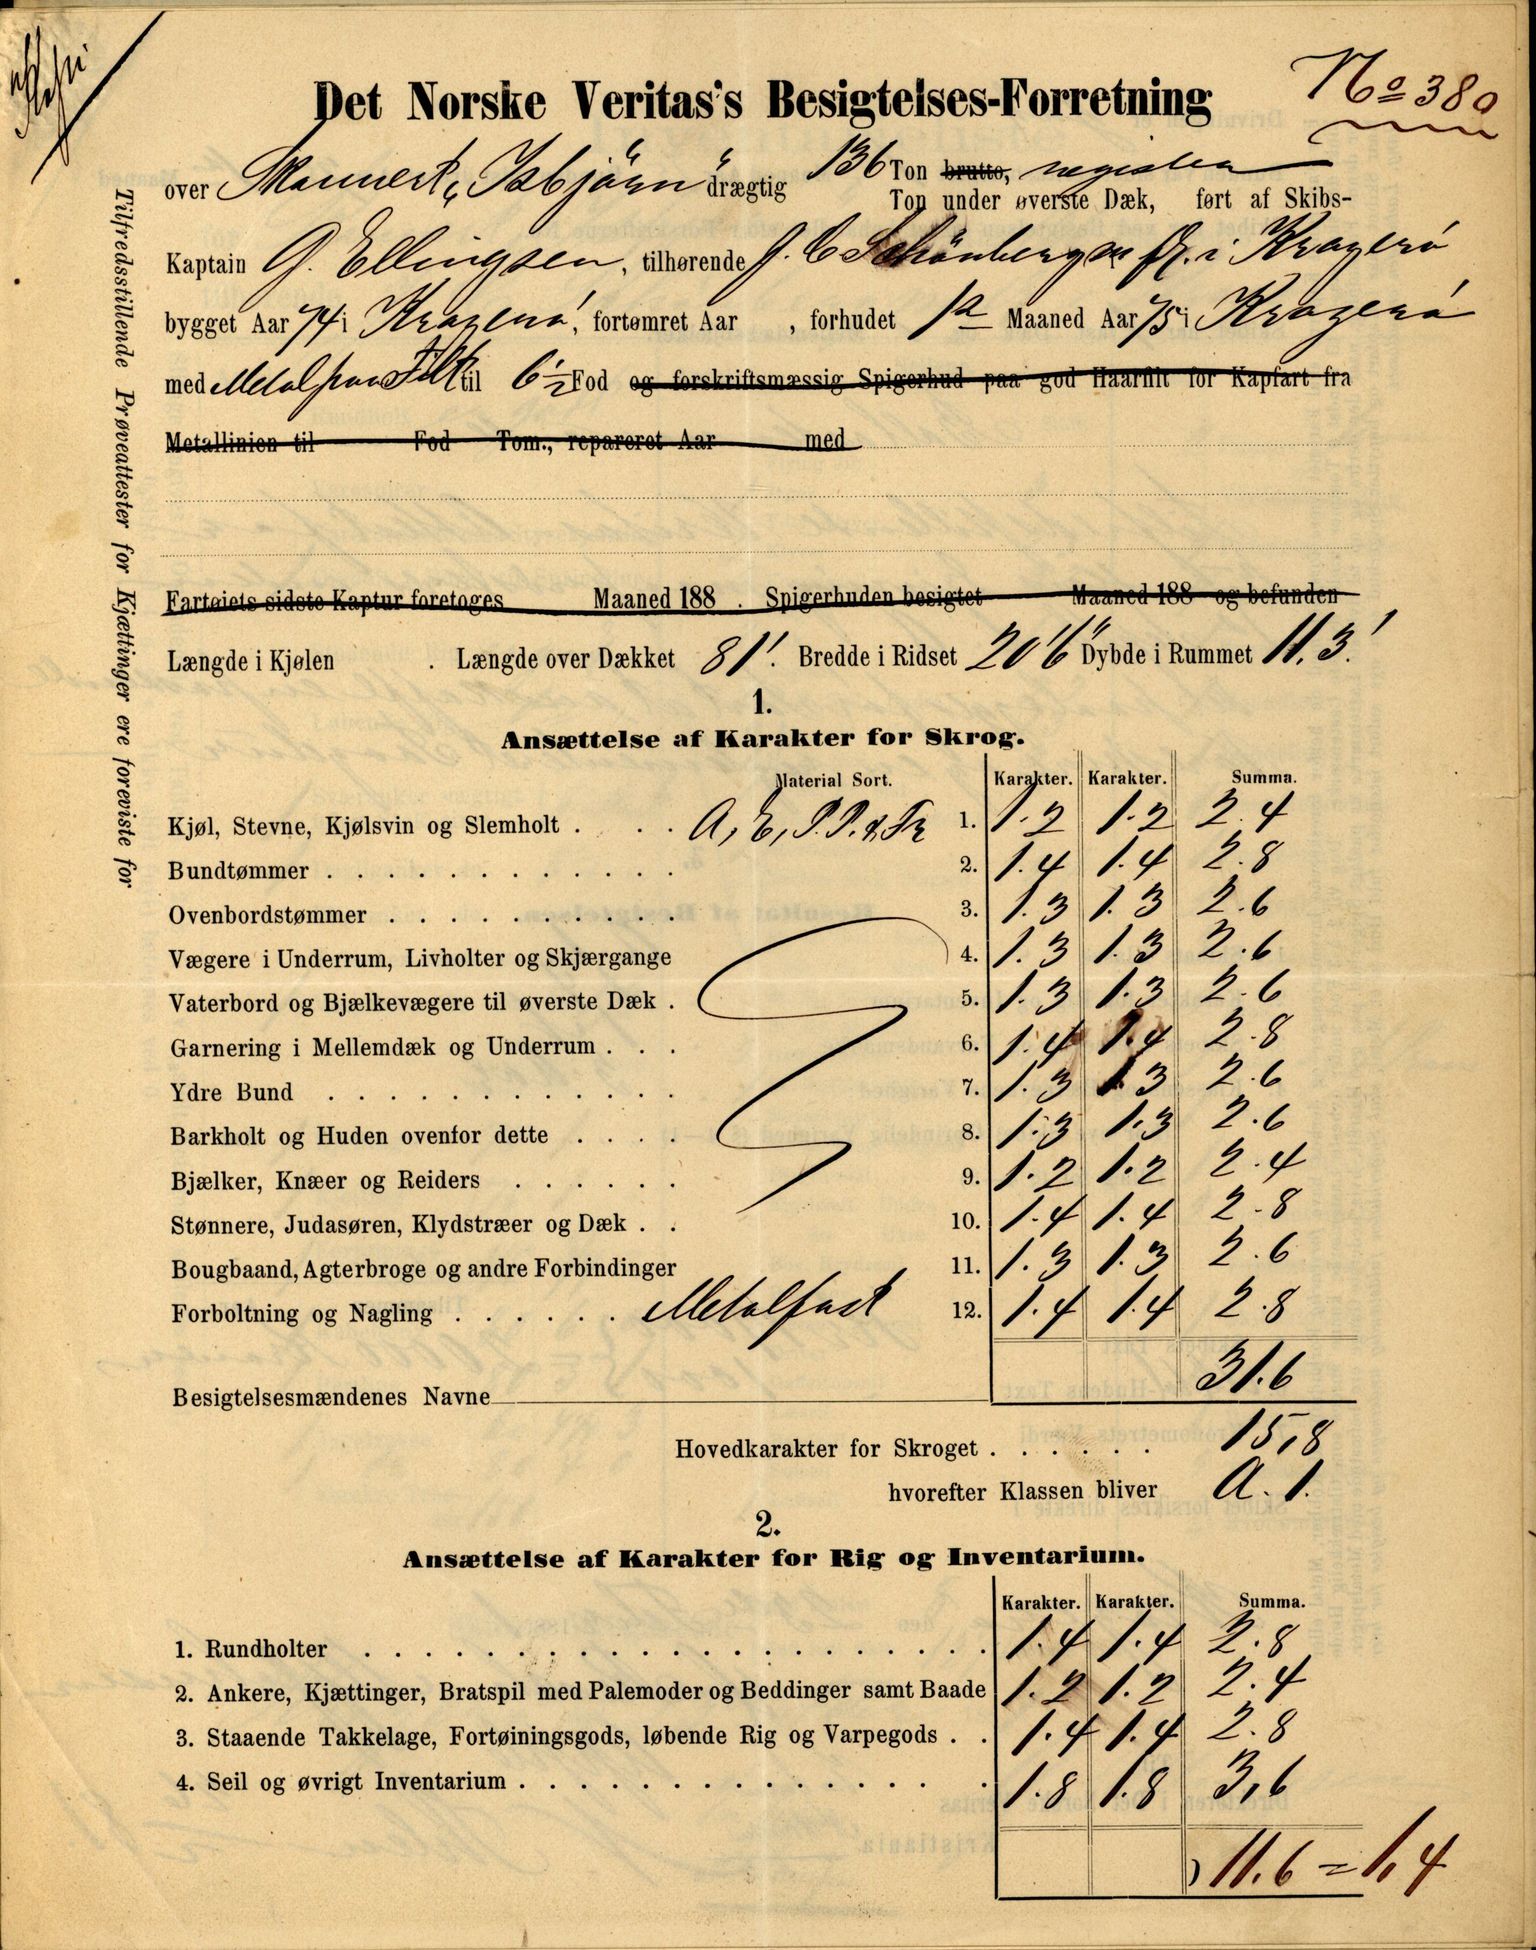 Det Norske Veritas's Besigtelses-Forretning
No 380
over Skonnert "Isbjörn" drægtig 136 Ton brutto, register
Ton under øverste Dæk, ført af Skibs-
Kaptain G. Ellingsen, tilhørende J. C Schönberg m fl. i Kragerö
bygget Aar 74 i Kragerö, fortømret Aar , forhudet Maaned Aar 75 i Kragerö
med Metal paa Filt til 6 1/2 Fod og forskriftsmæssig Spigerhud paa god Haarfilt for Kapfart fra
Metallinien til Fod Tom., repareret Aar med
Fartøiets sidste Kaptur foretoges Maaned 188 . Spigerhuden besigtet Maaned 188 og befunden
Længde i Kjølen . Længde over Dækket 81'. Bredde i Ridset 20'6" Dybde i Rummet 11.3'.
Tilfredsstillende Prøveattester for Kjættinger ere foreviste for
1.
Ansættelse af Karakter for Skrog.
Material Sort. Karakter. Karakter. Summa.
Kjøl, Stevne, Kjølsvin og Slemholt . . . . A, E, P.P. & Fr 1. 1.2 1.2 2.4
Bundtømmer . . . . . . . . . . . . 2. 1.4 1.4 2.8
Ovenbordstømmer . . . . . . . . . . 3. 1.3 1.3 2.6
Vægere i Underrum, Livholter og Skjærgange 4. 1.3 1.3 2.6
Vaterbord og Bjælkevægere til øverste Dæk . 5. 1.3 1.3 2.6
Garnering i Mellemdæk og Underrum . . . 6. 1.4 1.4 2.8
Ydre Bund . . . . . . . . . . . . 7. 1.3 1.3 2.6
Barkholt og Huden ovenfor dette . . . . 8. 1.3 1.3 2.6
Bjælker, Knæer og Reiders . . . . . . 9. 1.2 1.2 2.4
Stønnere, Judasøren, Klydstræer og Dæk . . 10. 1.4 1.4 2.8
Bougbaand, Agterbroge og andre Forbindinger 11. 1.3 1.3 2.6
Forboltning og Nagling . . . . . . Metalfast 12. 1.4 1.4 2.8
31.6
Besigtelsesmændenes Navne
Hovedkarakter for Skroget . . . . . . 15,8
hvorefter Klassen bliver A. 1.
2.
Ansættelse af Karakter for Rig og Inventarium.
Karakter. Karakter. Summa.
1. Rundholter . . . . . . . . . . . . . . . . . . . . . . 1.4 1.4 2.8
2. Ankere, Kjættinger, Bratspil med Palemoder og Beddinger samt Baade 1.2 1.2 2.4
3. Staaende Takkelage, Fortøiningsgods, løbende Rig og Varpegods . . 1.4 1.4 2.8
4. Seil og øvrigt Inventarium . . . . . . . . . . . . . . . . 1.8 1.8 3,6
11.6 = 1,4